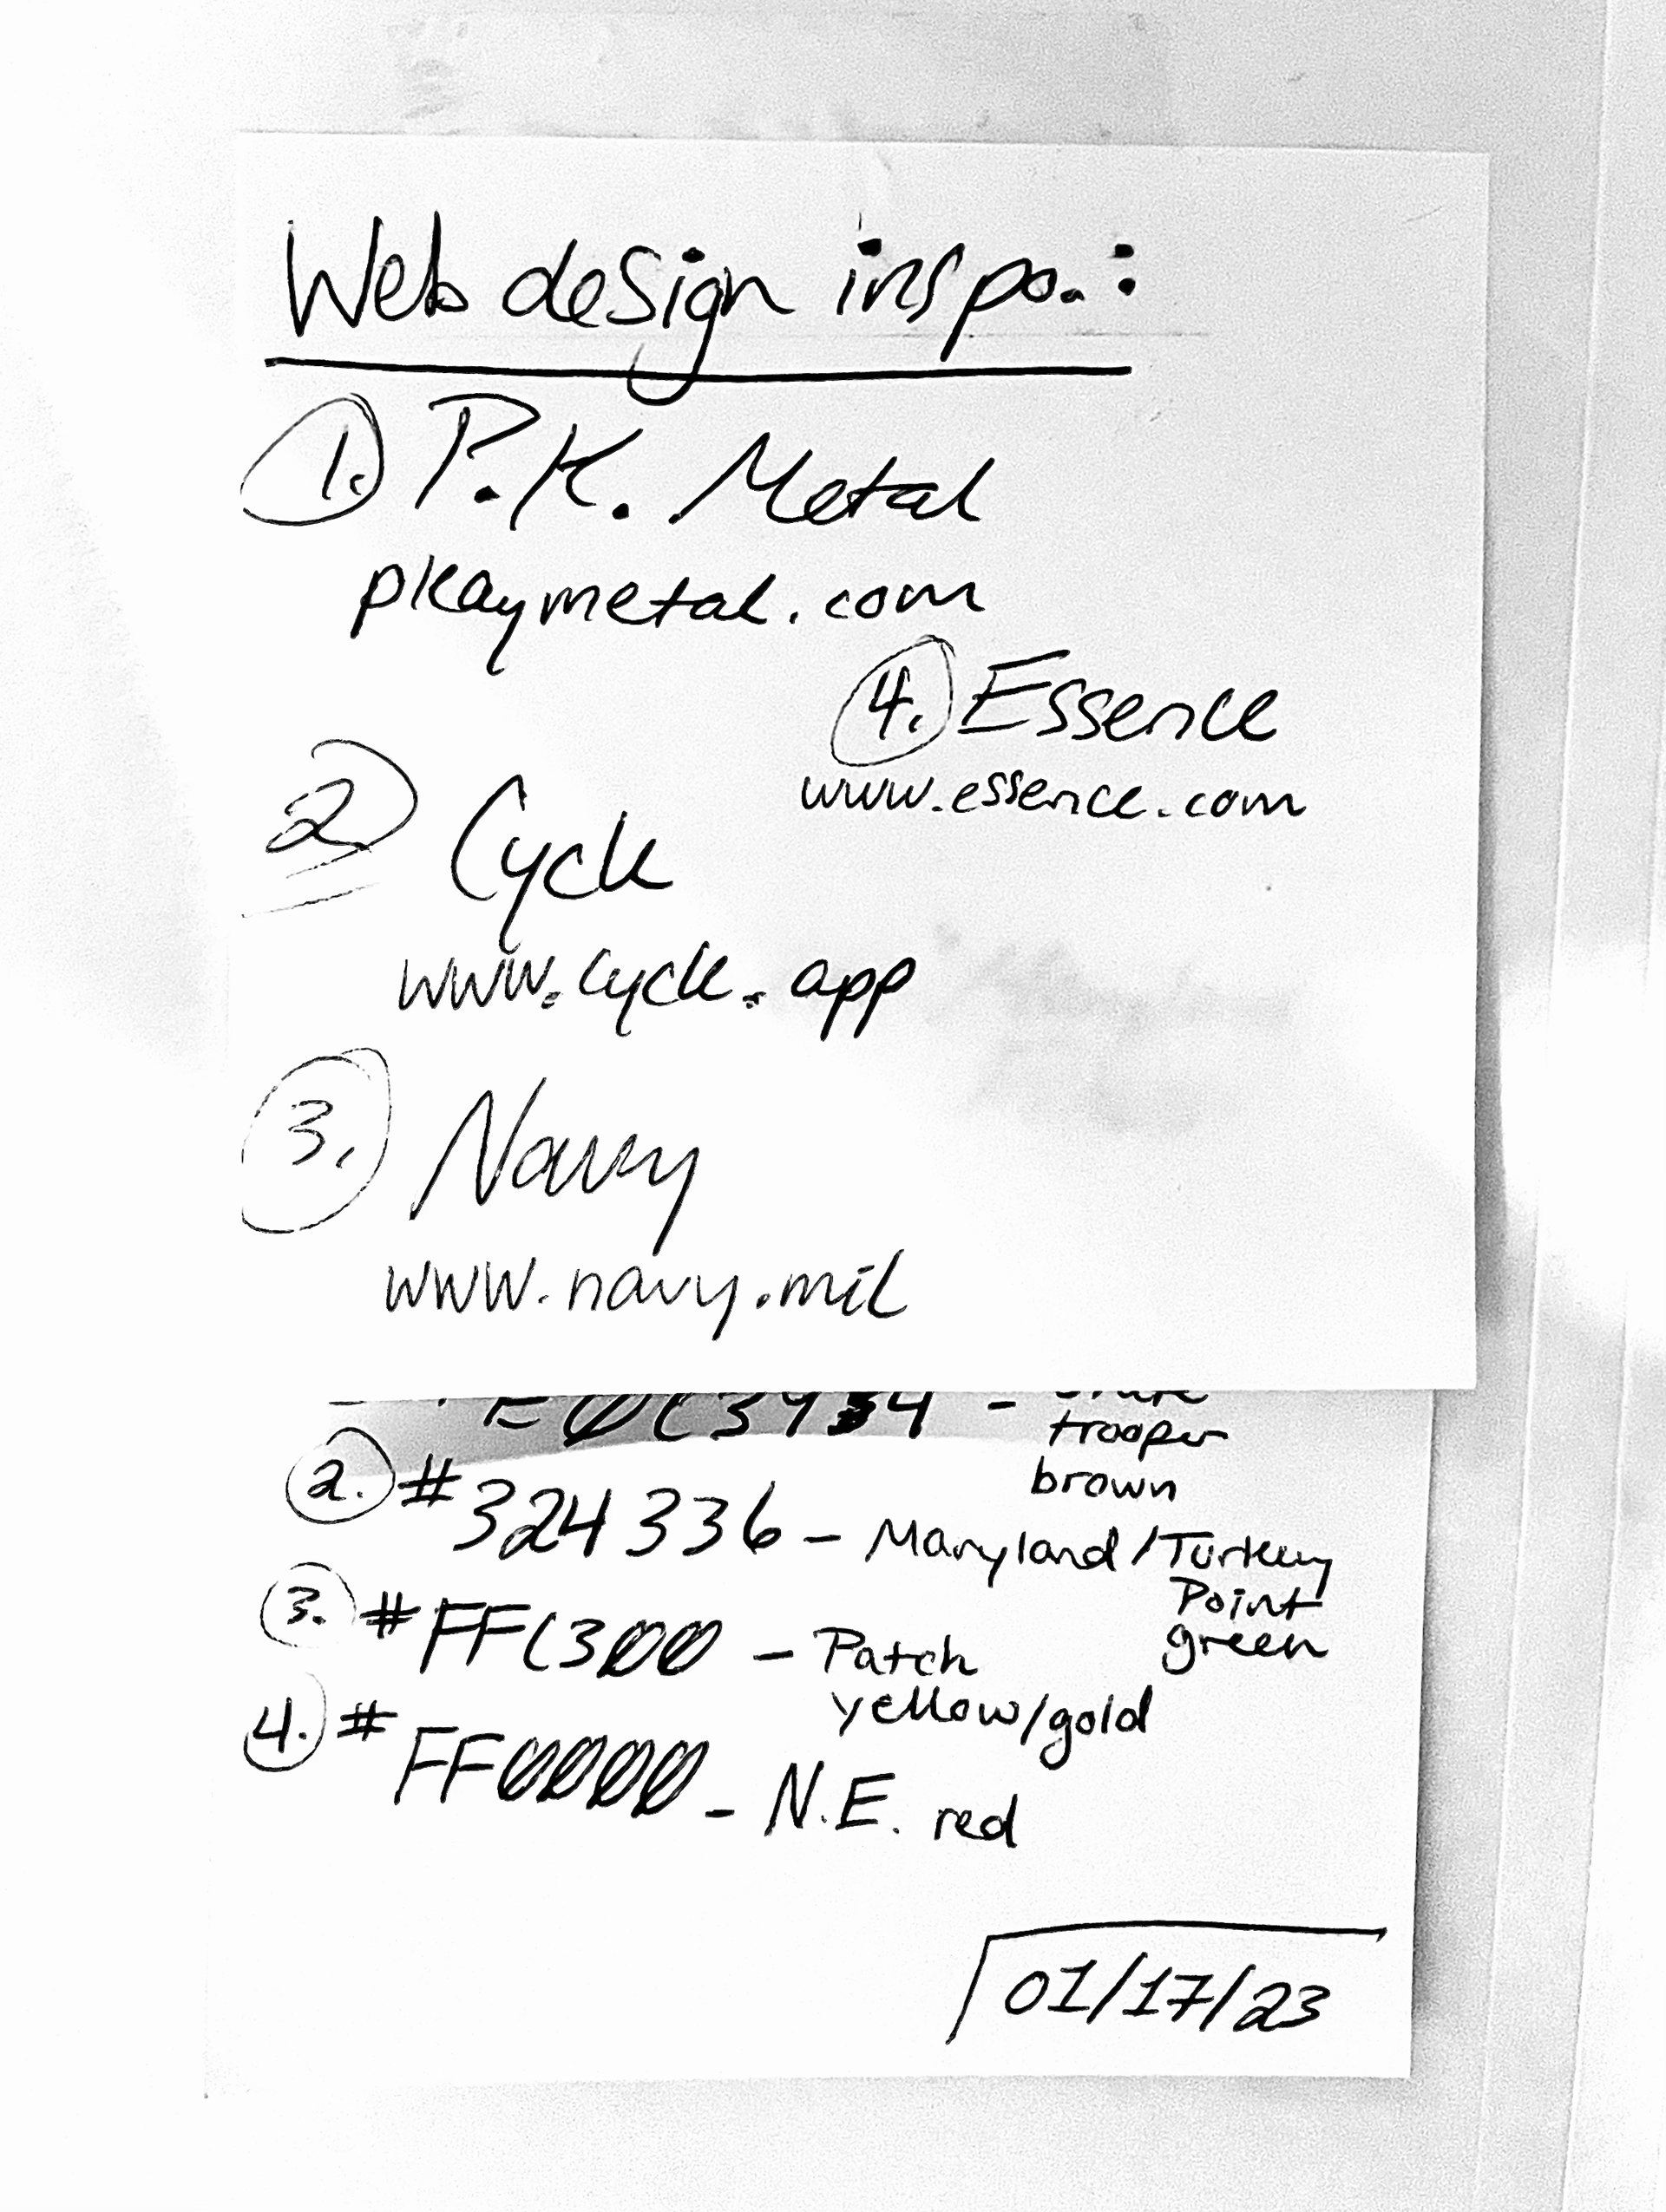 Web design inspo.:
1. P.K. Metal
pkaymetal.com
4. Essence
www.essence.com
2. Cycle
www.cycle.app
3. Navy
www.navy.mil
trooper
brown
2. #324336 - Maryland/Turkey
Point
green
3. #FFC300 - Patch
yellow/gold
4. #FF0000 - N.E. red
01/17/23